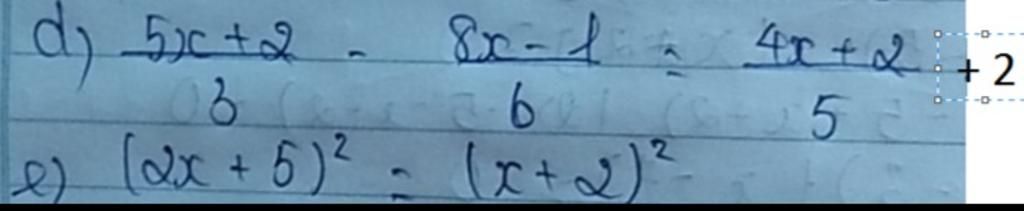 d) (5x+2)/6 - (8x-1)/6 = (4x+2)/5 + 2
e) (2x+5)² = (x+2)²